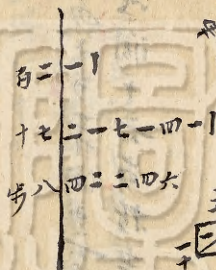 百二一丨
十七二一七一四一丨
步八四二二四六